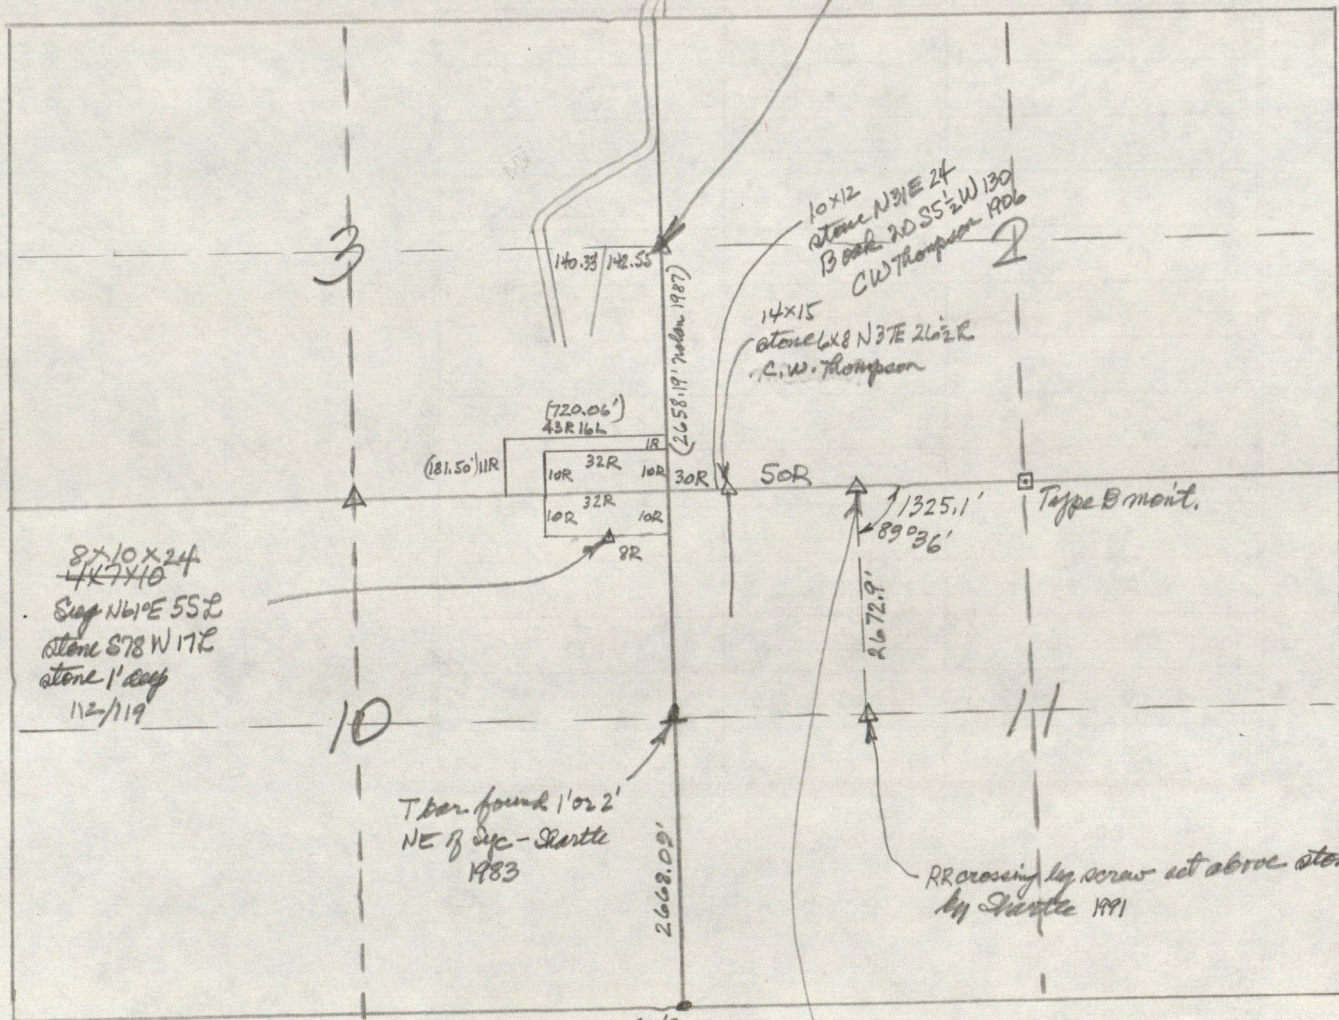 10x12
stone N31E 24
Book 20 S5½W 130
CW Thompson 1906
3
2
140.33/142.55
(2658.19' Nolan 1987)
14x15
stone 6x8 N37E 26½R
C.W. Thompson
(720.06')
43R16L
1R
(181.50')11R
10R
32R
10R
30R
50R
32R
10R
10R
8R
1325.1'
89°36'
Type B mon't.
2672.9'
8x10x24
4x7x10
N61°E 55L
stone S78W 17L
stone 1' deep
112/119
10
11
T bar found 1' or 2'
NE of Syc - Shartle
1983
2668.09'
RR crossing by screw set above sto
by Shartle 1991